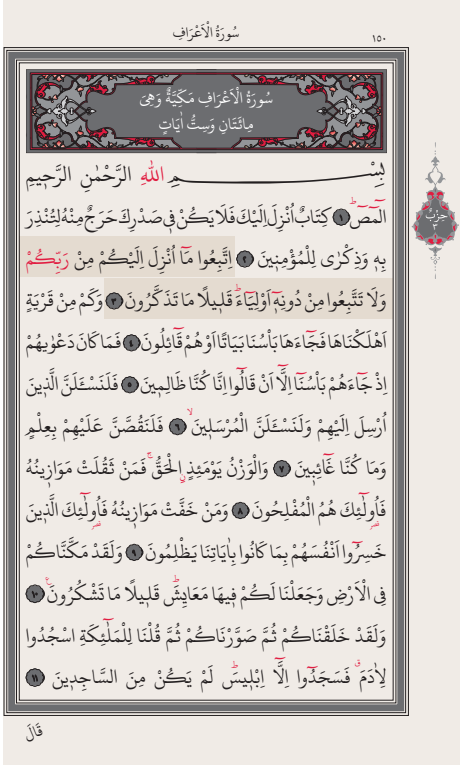 سُورَةُ الْاَعْرَافِ
١٥٠
سُورَةُ الْاَعْرَافِ مَكِّيَّةٌ وَهِيَ
مِائَتَانِ وَسِتُّ اٰيَاتٍ
بِسْــــــمِ اللّٰهِ الرَّحْمٰنِ الرَّحٖيمِ
الٓمٓصٓۜ ١ كِتَابٌ اُنْزِلَ اِلَيْكَ فَلَا يَكُنْ فٖي صَدْرِكَ حَرَجٌ مِنْهُ لِتُنْذِرَ
بِهٖ وَذِكْرٰى لِلْمُؤْمِنٖينَ ٢ اِتَّبِعُوا مَٓا اُنْزِلَ اِلَيْكُمْ مِنْ رَبِّكُمْ
وَلَا تَتَّبِعُوا مِنْ دُونِهٖٓ اَوْلِيَٓاءَۜ قَلٖيلًا مَا تَذَكَّرُونَ ٣ وَكَمْ مِنْ قَرْيَةٍ
اَهْلَكْنَاهَا فَجَٓاءَهَا بَأْسُنَا بَيَاتًا اَوْ هُمْ قَٓائِلُونَ ٤ فَمَا كَانَ دَعْوٰيهُمْ
اِذْ جَٓاءَهُمْ بَأْسُنَٓا اِلَّٓا اَنْ قَالُٓوا اِنَّا كُنَّا ظَالِمٖينَ ٥ فَلَنَسْـَٔلَنَّ الَّذٖينَ
اُرْسِلَ اِلَيْهِمْ وَلَنَسْـَٔلَنَّ الْمُرْسَلٖينَۙ ٦ فَلَنَقُصَّنَّ عَلَيْهِمْ بِعِلْمٍ
وَمَا كُنَّا غَٓائِبٖينَ ٧ وَالْوَزْنُ يَوْمَئِذٍۨ الْحَقُّۚ فَمَنْ ثَقُلَتْ مَوَازٖينُهُ
فَاُو۬لٰٓئِكَ هُمُ الْمُفْلِحُونَ ٨ وَمَنْ خَفَّتْ مَوَازٖينُهُ فَاُو۬لٰٓئِكَ الَّذٖينَ
خَسِرُٓوا اَنْفُسَهُمْ بِمَا كَانُوا بِاٰيَاتِنَا يَظْلِمُونَ ٩ وَلَقَدْ مَكَّنَّاكُمْ
فِي الْاَرْضِ وَجَعَلْنَا لَكُمْ فٖيهَا مَعَايِشَۜ قَلٖيلًا مَا تَشْكُرُونَ۟ ١٠
وَلَقَدْ خَلَقْنَاكُمْ ثُمَّ صَوَّرْنَاكُمْ ثُمَّ قُلْنَا لِلْمَلٰٓئِكَةِ اسْجُدُوا
لِاٰدَمَۗ فَسَجَدُٓوا اِلَّٓا اِبْلٖيسَۜ لَمْ يَكُنْ مِنَ السَّاجِدٖينَ ١١
حِزْبٌ
٣
قَالَ